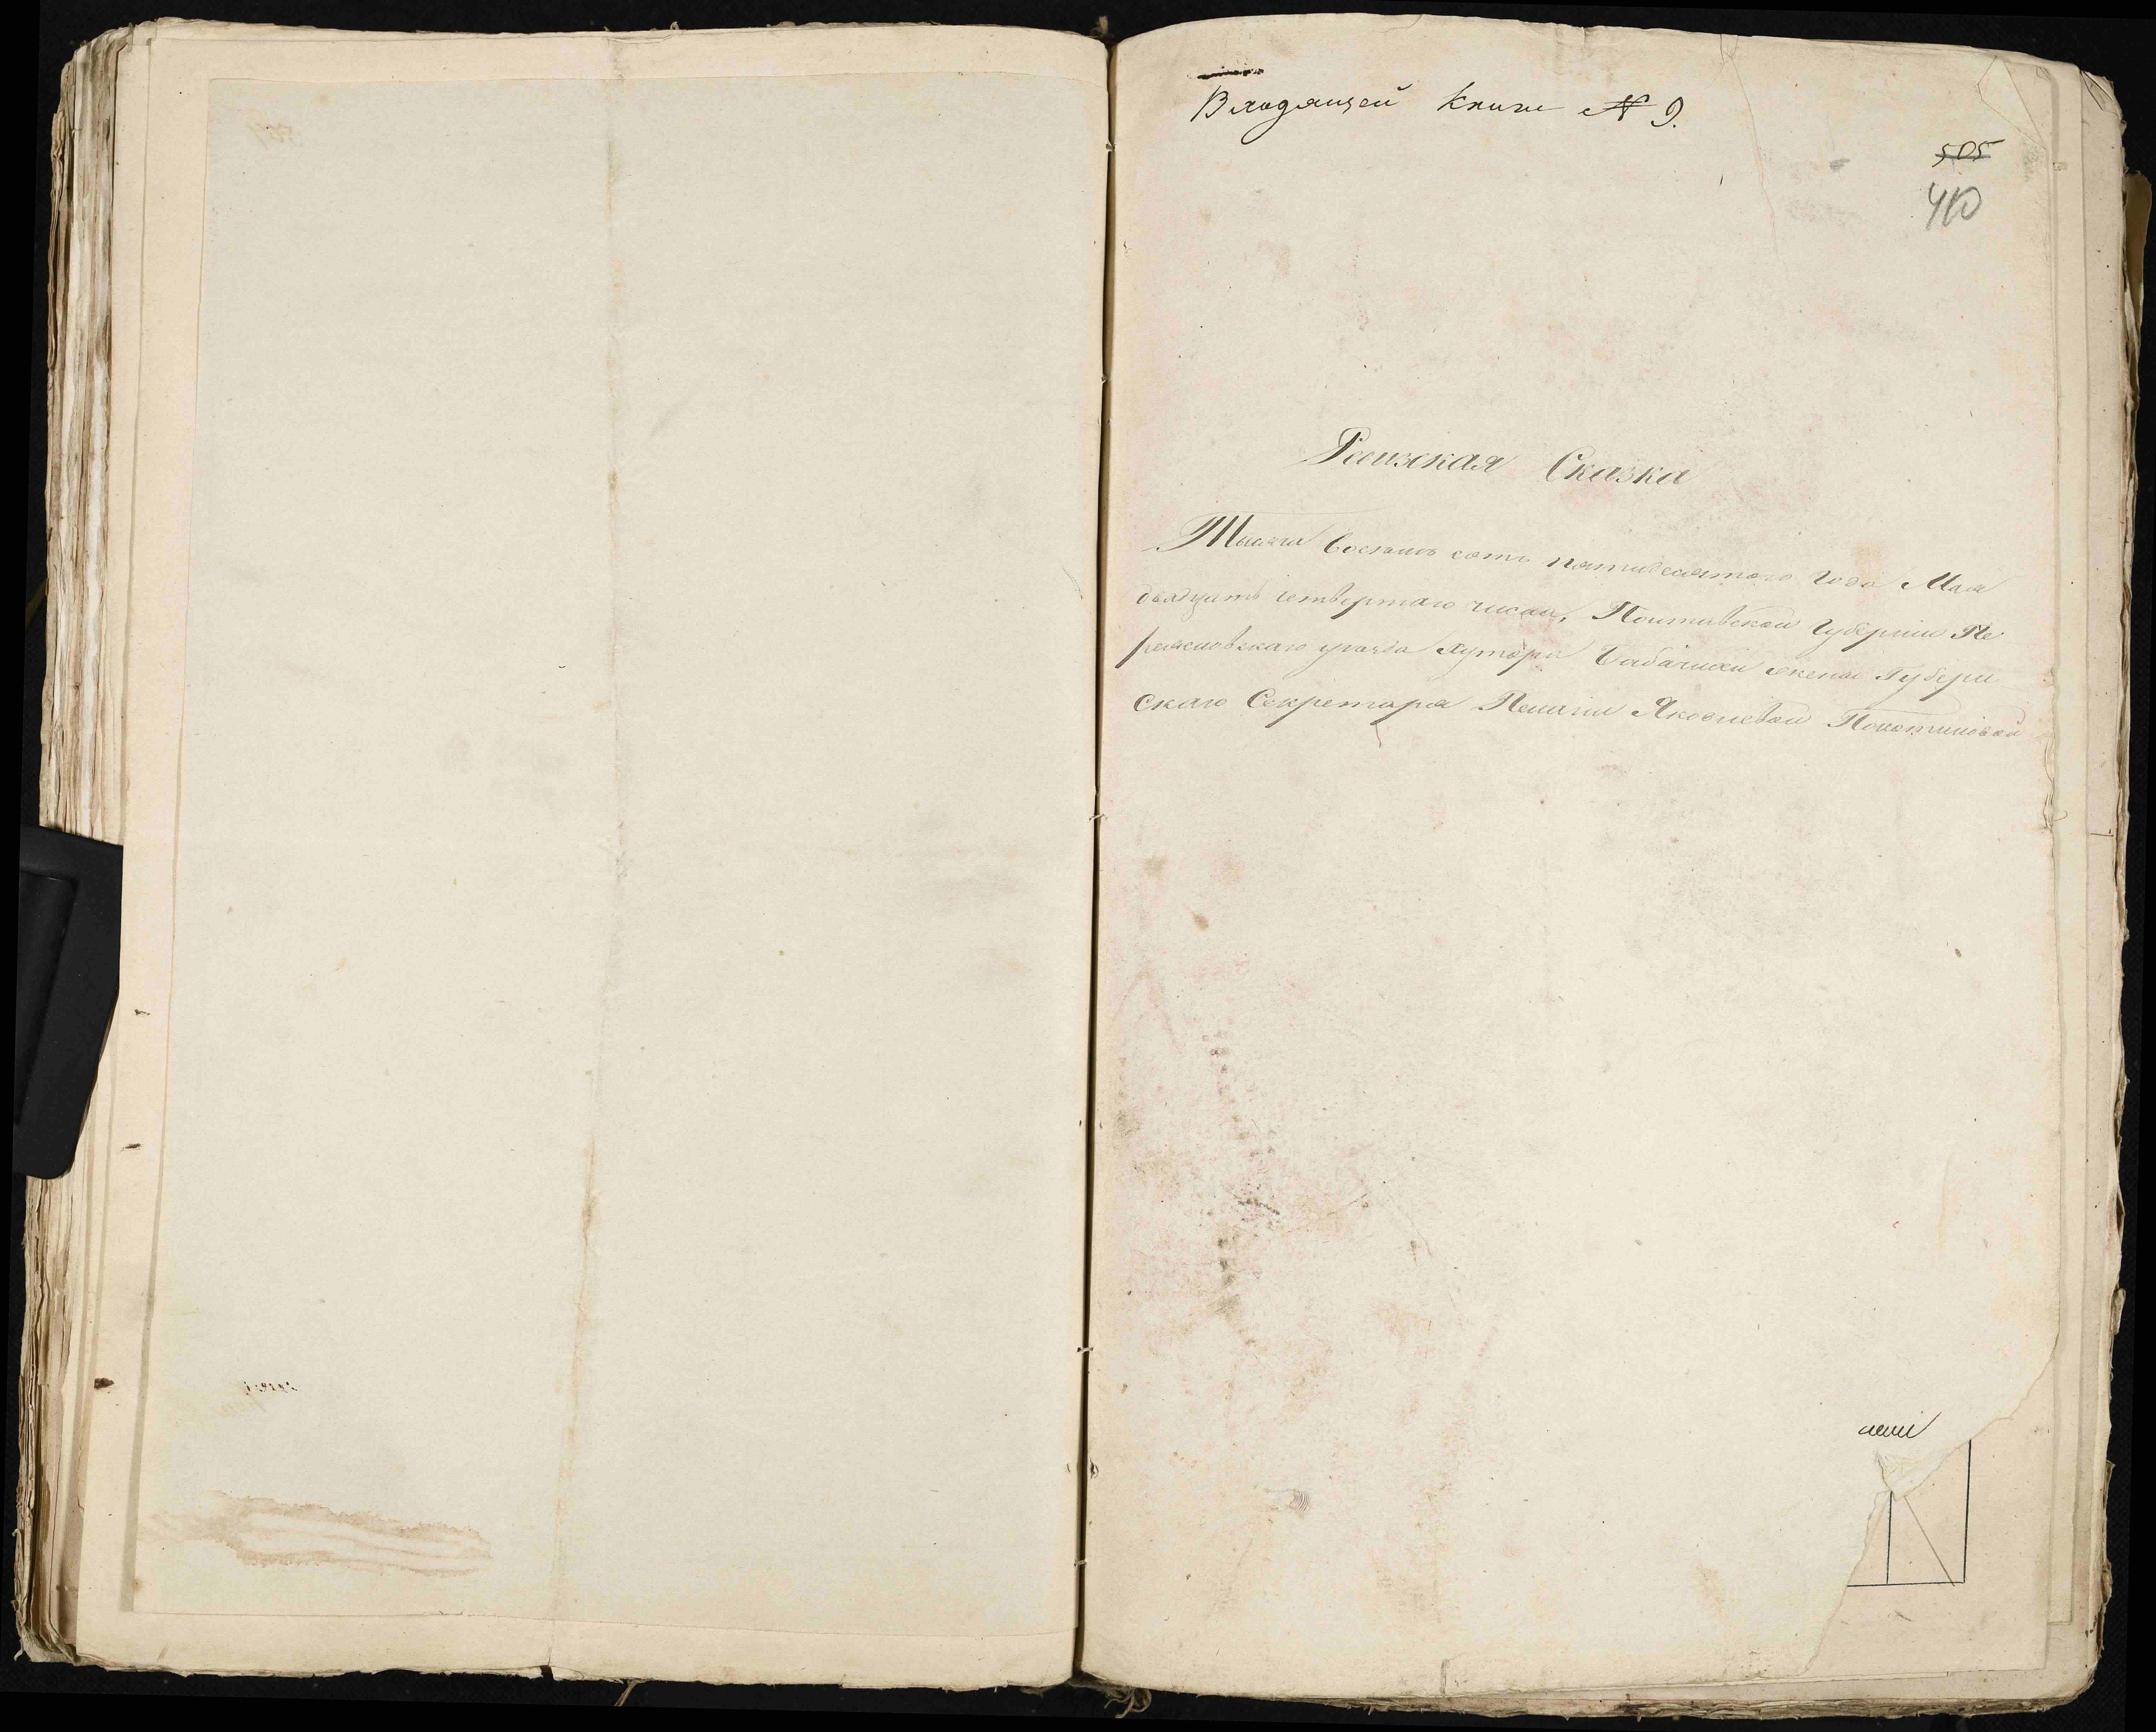 Входящей книги № 9.
505
410
Ревизская Сказка
Тысяча восемь сотъ пятидесятого года Мая
двадцять четвертаго числа, Полтавской губернии Пе
реяславскаго уезда хутора Бабачихи жены Губерн
скаго Секретаря Пелагии Яковлевой